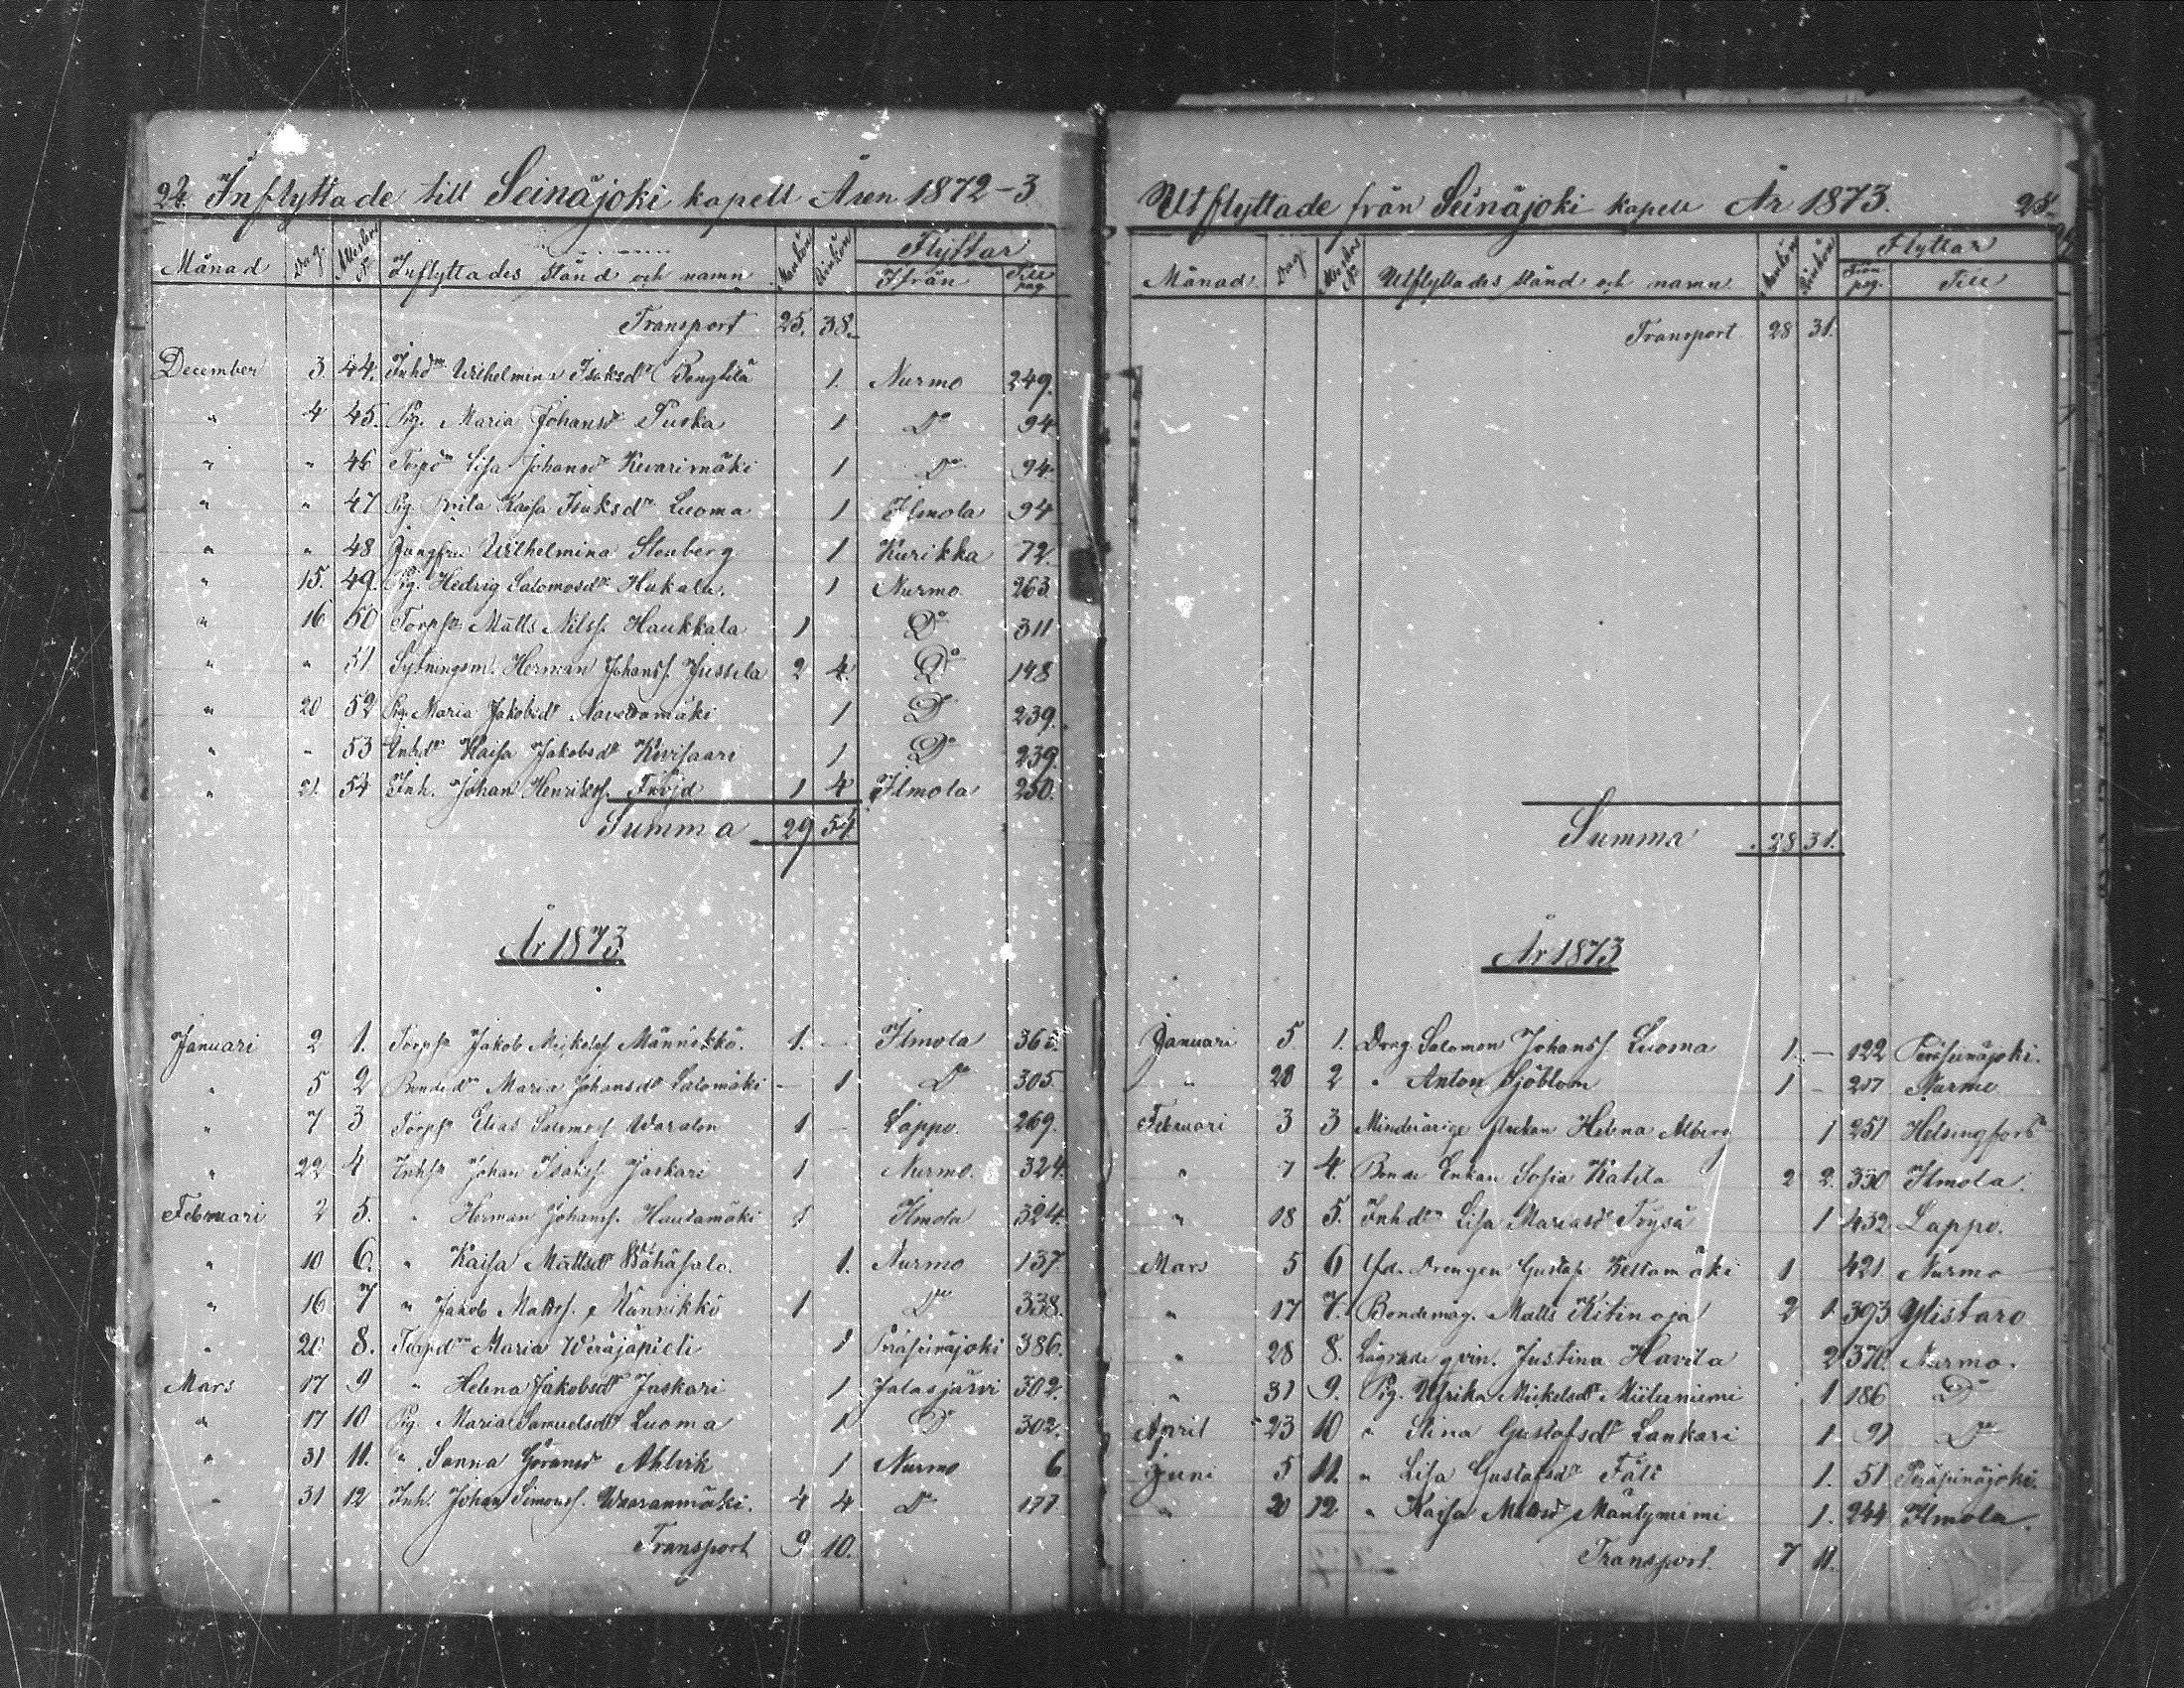 24. Inflyttade till Seinäjoki kapell Åren 1872-3
Månad Dag. Attestens N. Inflyttades stånd och namn Mankön Qvinkön Flyttar
Ifrån Till pag.
Transport 25. 38.
December 3 44. Inhdr Wilhelmina Isaksdr 1. Nurmo 249.
" 4 45. Pig. Maria Johansdr Puska 1 Do 94
" " 46 Torpdr Lisa Johansdr Kevarimäki 1 Do 94.
" " 47 Pig. Brita Kaisa Isaksdr Luoma 1 Ilmola 94
" " 48 Jungfru Wilhelmina Stenberg 1 Kurikka 72.
" 15. 49. Pig. Hedvig Salomosdr Hakala. 1 Nurmo 263
" 16 50 Torpr Matts Nilss. Haukkala 1 Do 311
" " 51 Sytningsm. Herman Johanss. Jussila 2 4 Do 148
" 20 52 Pig. Maria Jakobsdr Navettamäki 1 Do 239.
" " 53 Inhdr Kaisa Jakobsdr Kivisaari 1 Do 239.
" 21. 54 Inh. Johan Henrikss. Fröjd 1 4 Ilmola 250.
Summa 29 54.
År 1873
Januari 2 1. Torpr Jakob Mickelss Männikkö. 1. - Ilmola 365.
" 5 2 Bondedr Maria Johansdr Salomäki - 1 Do 305.
" 7 3 Torpr Elias Salomoss 1 - Lappo. 269.
" 22 4 Inhsr Johan Isakss. Jaskari 1 Nurmo. 324.
Februari 2 5. " Herman Johanss. Hautamäki 1 Ilmola 324.
" 10 6. " Kaisa Mattsdr Wähäsalo. 1. Nurmo 137.
" 16 7 " Jakob Matss. Männikkö 1 Do 338.
" 20 8. Torpdr Maria 1 Peräseinäjoki 386.
Mars 17 9 " Helena Jakobsdr Jaskari 1 Jalasjärvi 302.
" 17 10 Pig. Maria Samuelsdr Luoma 1 Do 302.
" 31 11. " Sanna Göransdr Ahlvik 1 Nurmo 6
" 31 12 Inh. Johan Simonss. Waaranmäki. 4 4 Do 177
Transport 9 10.
Utflyttade från Seinäjoki kapell År 1873. 25.
Månad Dag. Attestens N. Utflyttades stånd och namn Mankön Qvinkön Flyttar
Från pag. Till
Transport 28 31.
Summa 28 31.
År 1873
Januari 5 1. Dreng. Salomon Johanss. Luoma 1. - 122 Peräseinäjoki.
" 28 2 " Anton Sjöblom 1 - 217 Nurmo
Februari 3 3 Minderåriga flickan Helena Alberg 1 251 Helsingfors
" 7 4. Bonde Enkan Sofia Katila 2 2. 330 Ilmola.
" 18 5. Inhdr Lisa Mariasdr Töysä 1 432 Lappo.
Mars 5 6 Drengen Gustaf Keltamäki 1 421 Nurmo
" 17 7. Bondemåg. Matts Kitinoja 2 1. 393 Ylistaro
" 28 8. Lägrade qvin. Justina Havila 2 370 Nurmo.
" 31 9. Pig. Ulrika Mickelsdr Miiluniemi 1. 186 Do
April 23 10 " Stina Gustafsdr Lankari 1 91 Do
Juni 5 11. " Lisa Gustafsdr Fält 1. 51 Peräseinäjoki.
" 20 12 " Kaisa Mattsdr Mäntyniemi 1. 244 Ilmola.
Transport. 7 11.